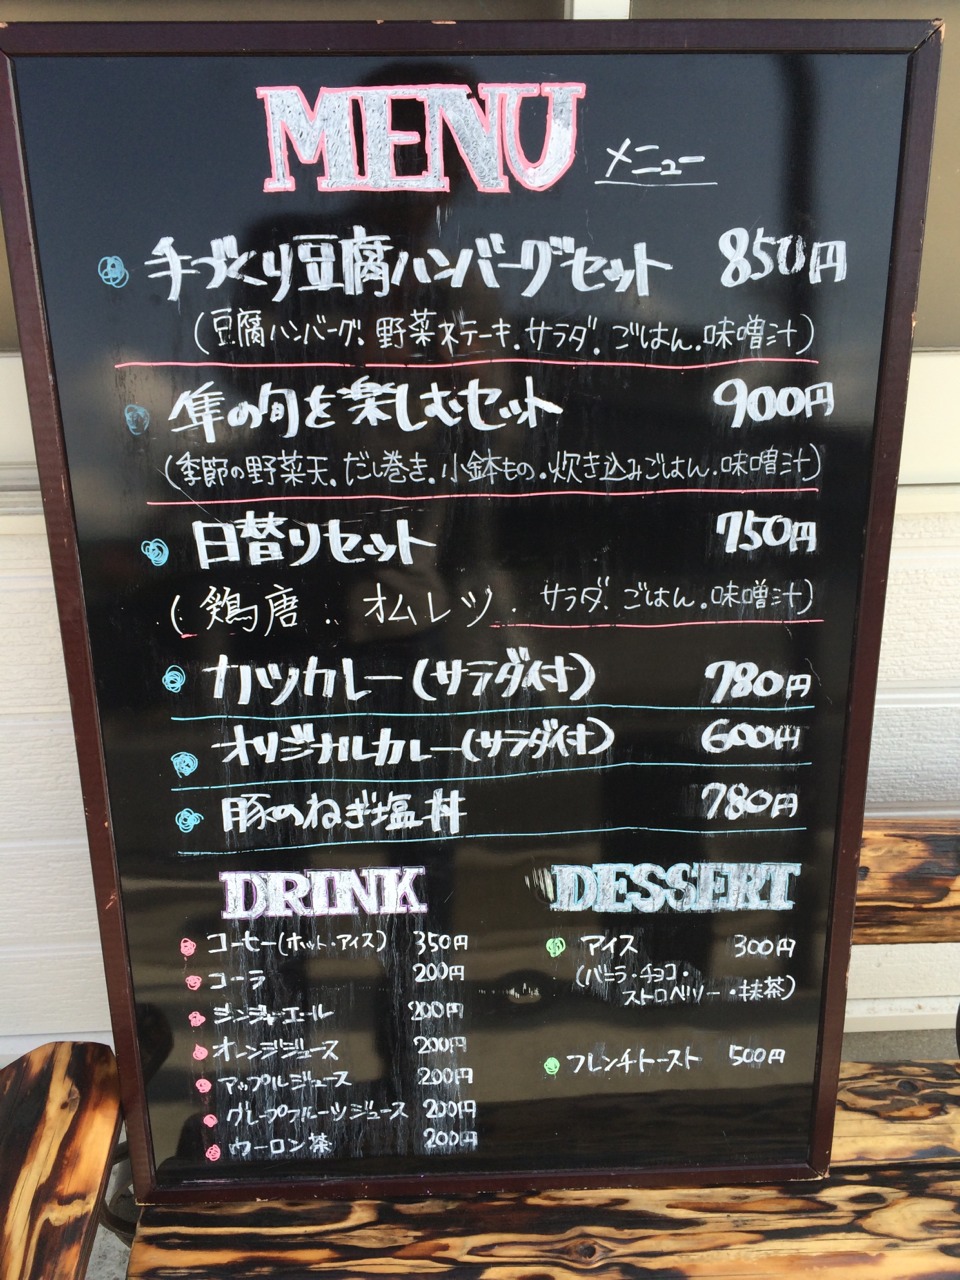 MENU メニュー
手づくり豆腐ハンバーグセット 850円
(豆腐ハンバーグ.野菜ステーキ.サラダ.ごはん.味噌汁)
隼の旬を楽しむセット 900円
(季節の野菜天.だし巻き.小鉢もの.炊き込みごはん.味噌汁)
日替りセット 750円
(鶏唐.. オムレツ.サラダ.ごはん.味噌汁)
カツカレー(サラダ付) 780円
オリジナルカレー(サラダ付) 600円
豚のねぎ塩丼 780円
DRINK
コーヒー(ホット・アイス) 350円
コーラ 200円
ジンジャーエール 200円
オレンジジュース 200円
アップルジュース 200円
グレープフルーツジュース 200円
ウーロン茶 200円
DESSERT
アイス 300円
(バニラ・チョコ・
ストロベリー・抹茶)
フレンチトースト 500円